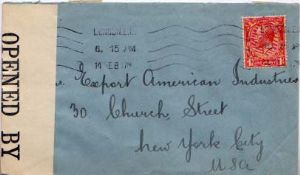 OPENED BY
LONDON
6. 15 PM
14 FEB 17
Export American Industries
30 Church Street
New York City
USA